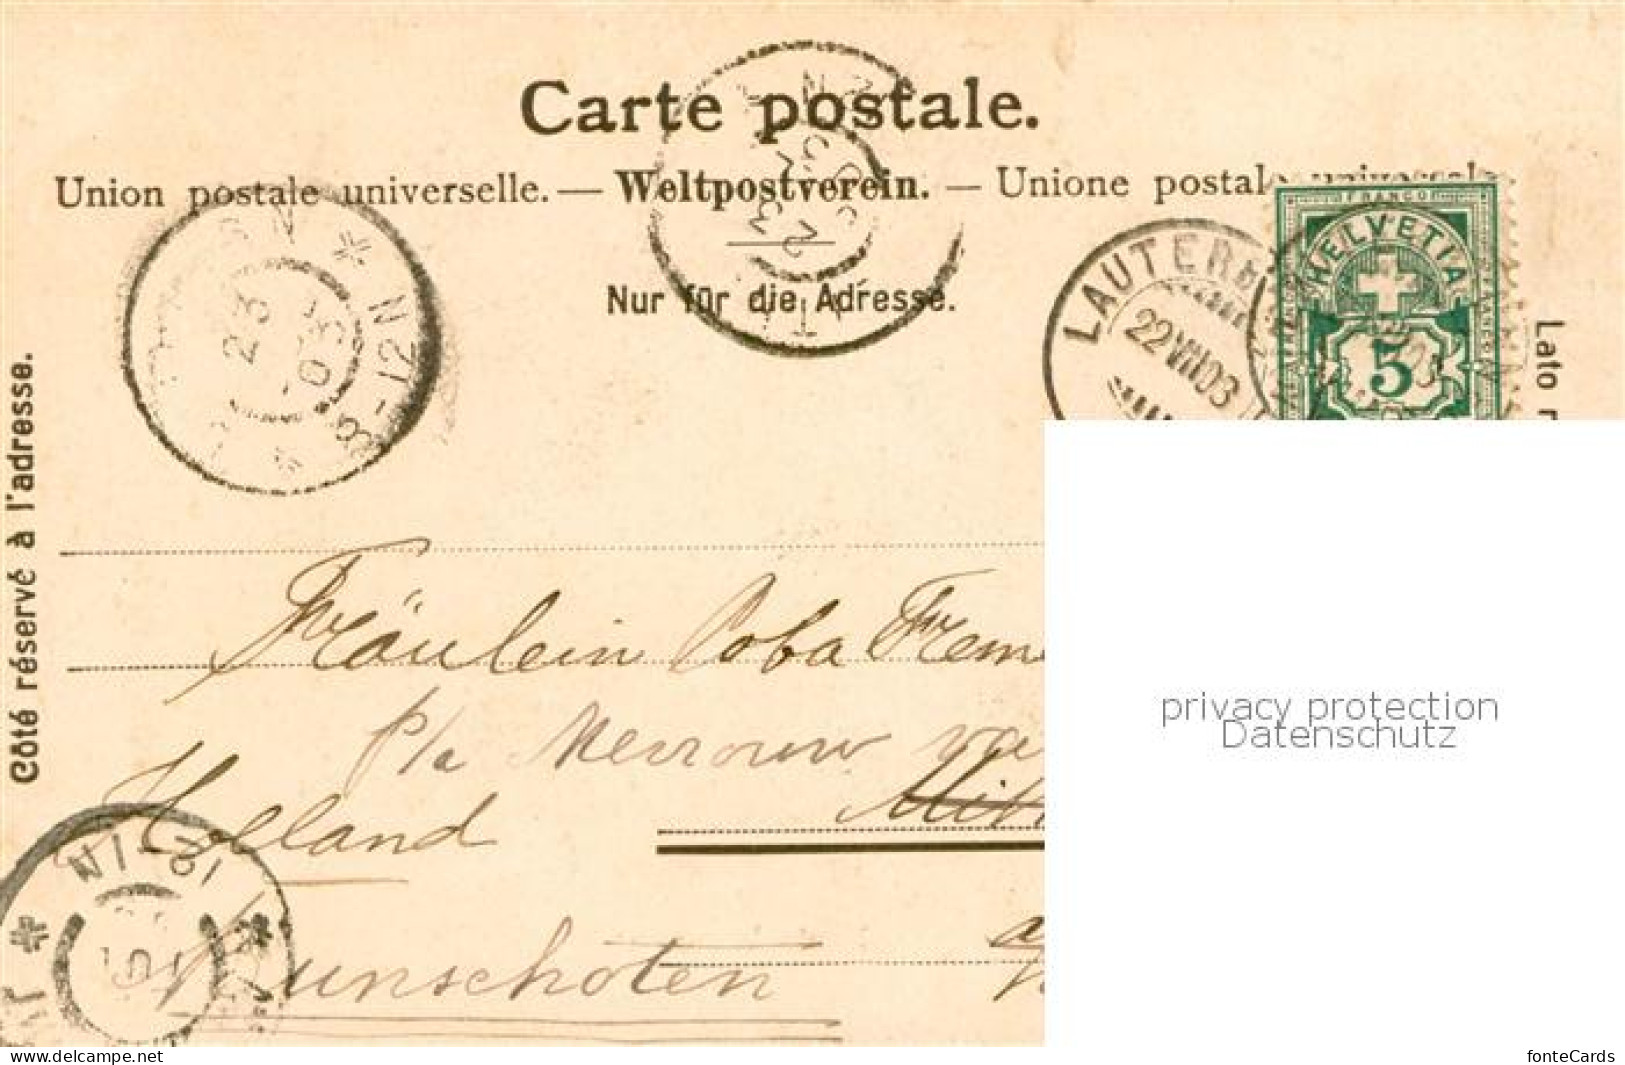 Carte postale.
Union postale universelle. — Weltpostverein. — Unione postale universale
Nur für die Adresse.
Côté réservé à l'adresse.
Lato r
LAUTERB
22 VII 03
FRANCO
HELVETIA
5
23
03
8-12 N
Fräulein Coba Freme
p/a Mevrouw va
Holland
Bunschoten
privacy protection
Datenschutz
www.delcampe.net
fonteCards